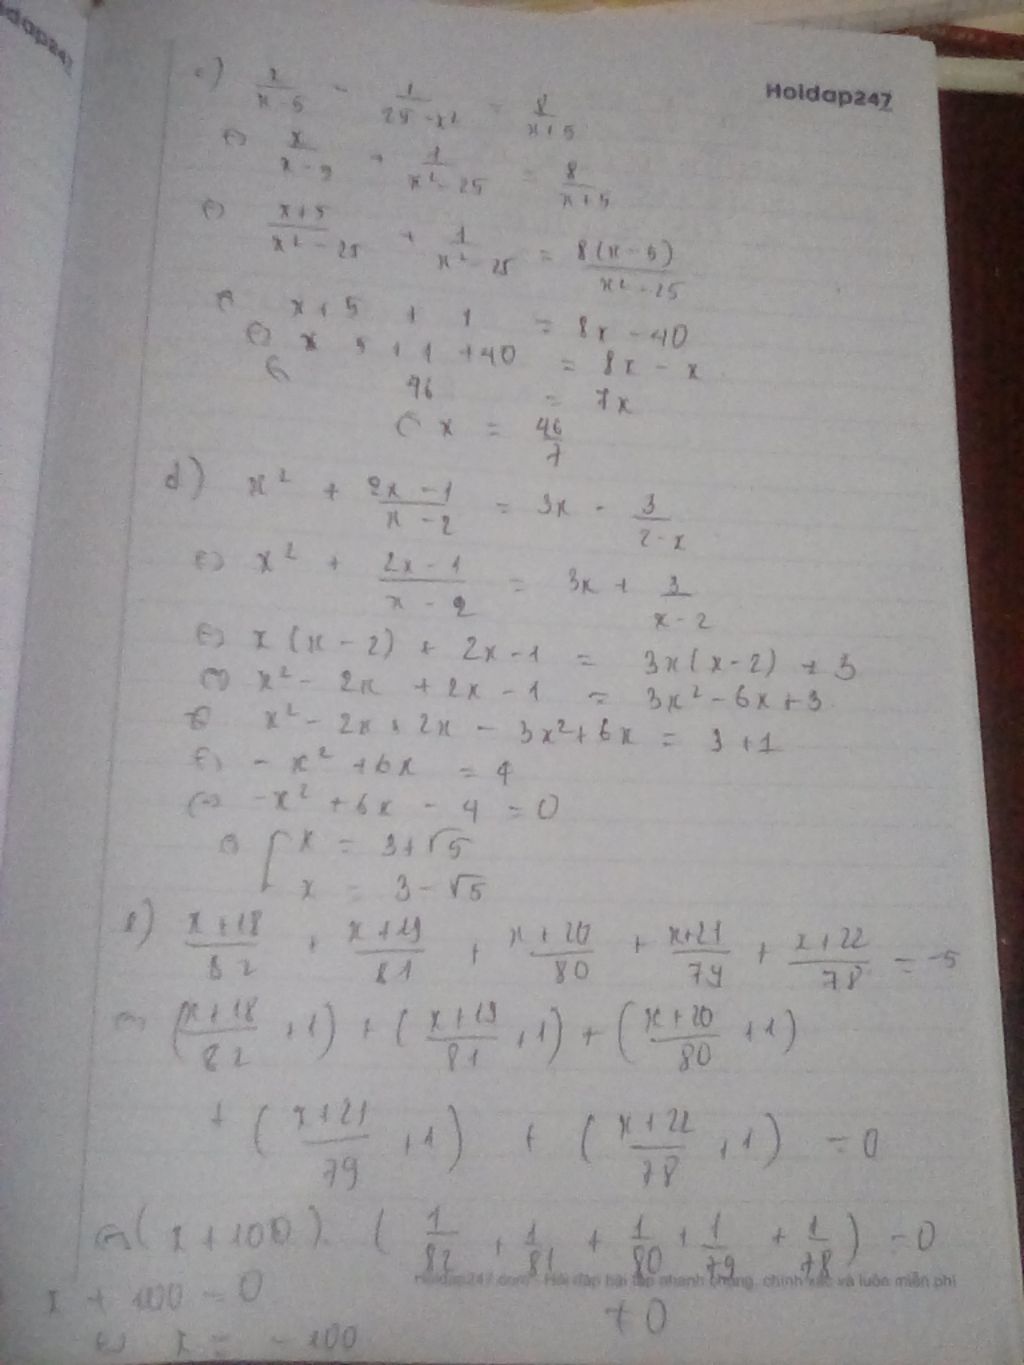 Hoidap247
c) 1/(x-5) - 1/(25-x²) = 8/(x+5)
⇔ x/(x-5) + 1/(x²-25) = 8/(x+5)
⇔ (x+5)/(x²-25) + 1/(x²-25) = 8(x-5)/(x²-25)
⇔ x+5 + 1 = 8x - 40
⇔ 5+1+40 = 8x - x
⇔ 46 = 7x
⇔ x = 46/7
d) x² + (2x-1)/(x-2) = 3x - 3/(2-x)
⇔ x² + (2x-1)/(x-2) = 3x + 3/(x-2)
⇔ x(x-2) + 2x-1 = 3x(x-2) + 3
⇔ x² - 2x + 2x - 1 = 3x² - 6x + 3
⇔ x² - 2x + 2x - 3x² + 6x = 3+1
⇔ -x² + 6x = 4
⇔ -x² + 6x - 4 = 0
⇔ [ x = 3+√5
x = 3-√5
e) (x+18)/82 + (x+19)/81 + (x+20)/80 + (x+21)/79 + (x+22)/78 = -5
⇔ ((x+18)/82 + 1) + ((x+19)/81 + 1) + ((x+20)/80 + 1)
+ ((x+21)/79 + 1) + ((x+22)/78 + 1) = 0
⇔ (x+100). (1/82 + 1/81 + 1/80 + 1/79 + 1/78) = 0
Hoidap247.com - Hỏi đáp bài tập nhanh chóng, chính xác và luôn miễn phí
x + 100 = 0
≠ 0
⇔ x = -100